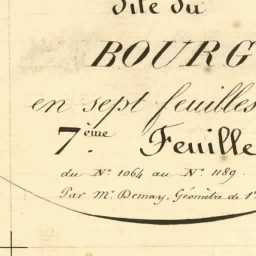 dite du
BOURG
en sept feuilles
7ème Feuille
du N° 1064 au N° 1189.
Par Mr. Demay, Géomètre de 1re